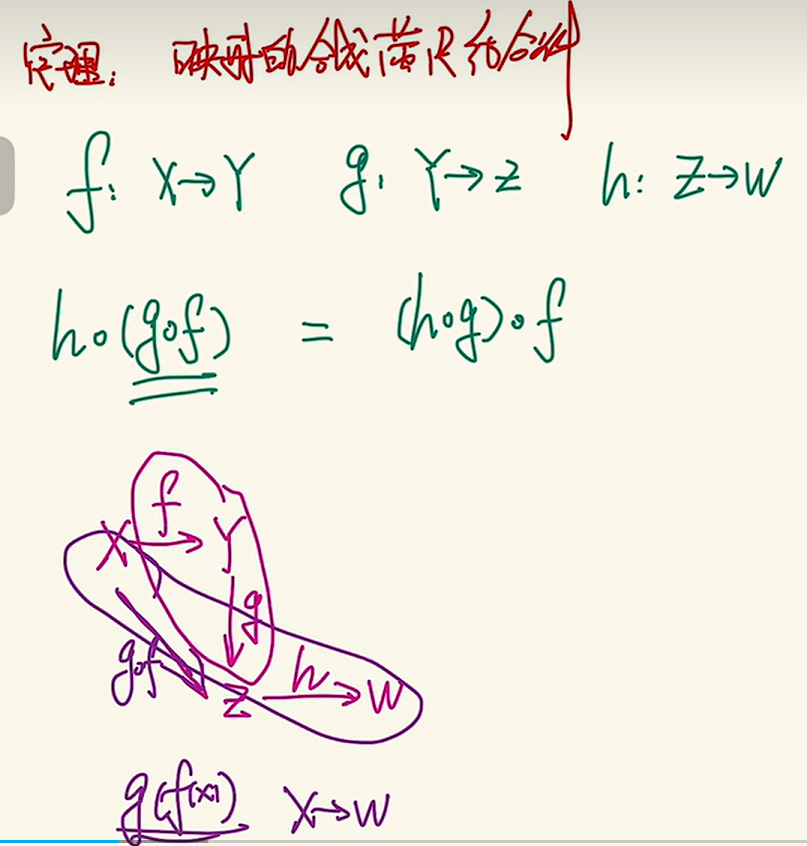 定理: 映射的合成满足结合律
f: X→Y g: Y→Z h: Z→W
h∘(g∘f) = (h∘g)∘f
f
X → Y
g
g∘f
Z h→ W
g(f(x)) X→W